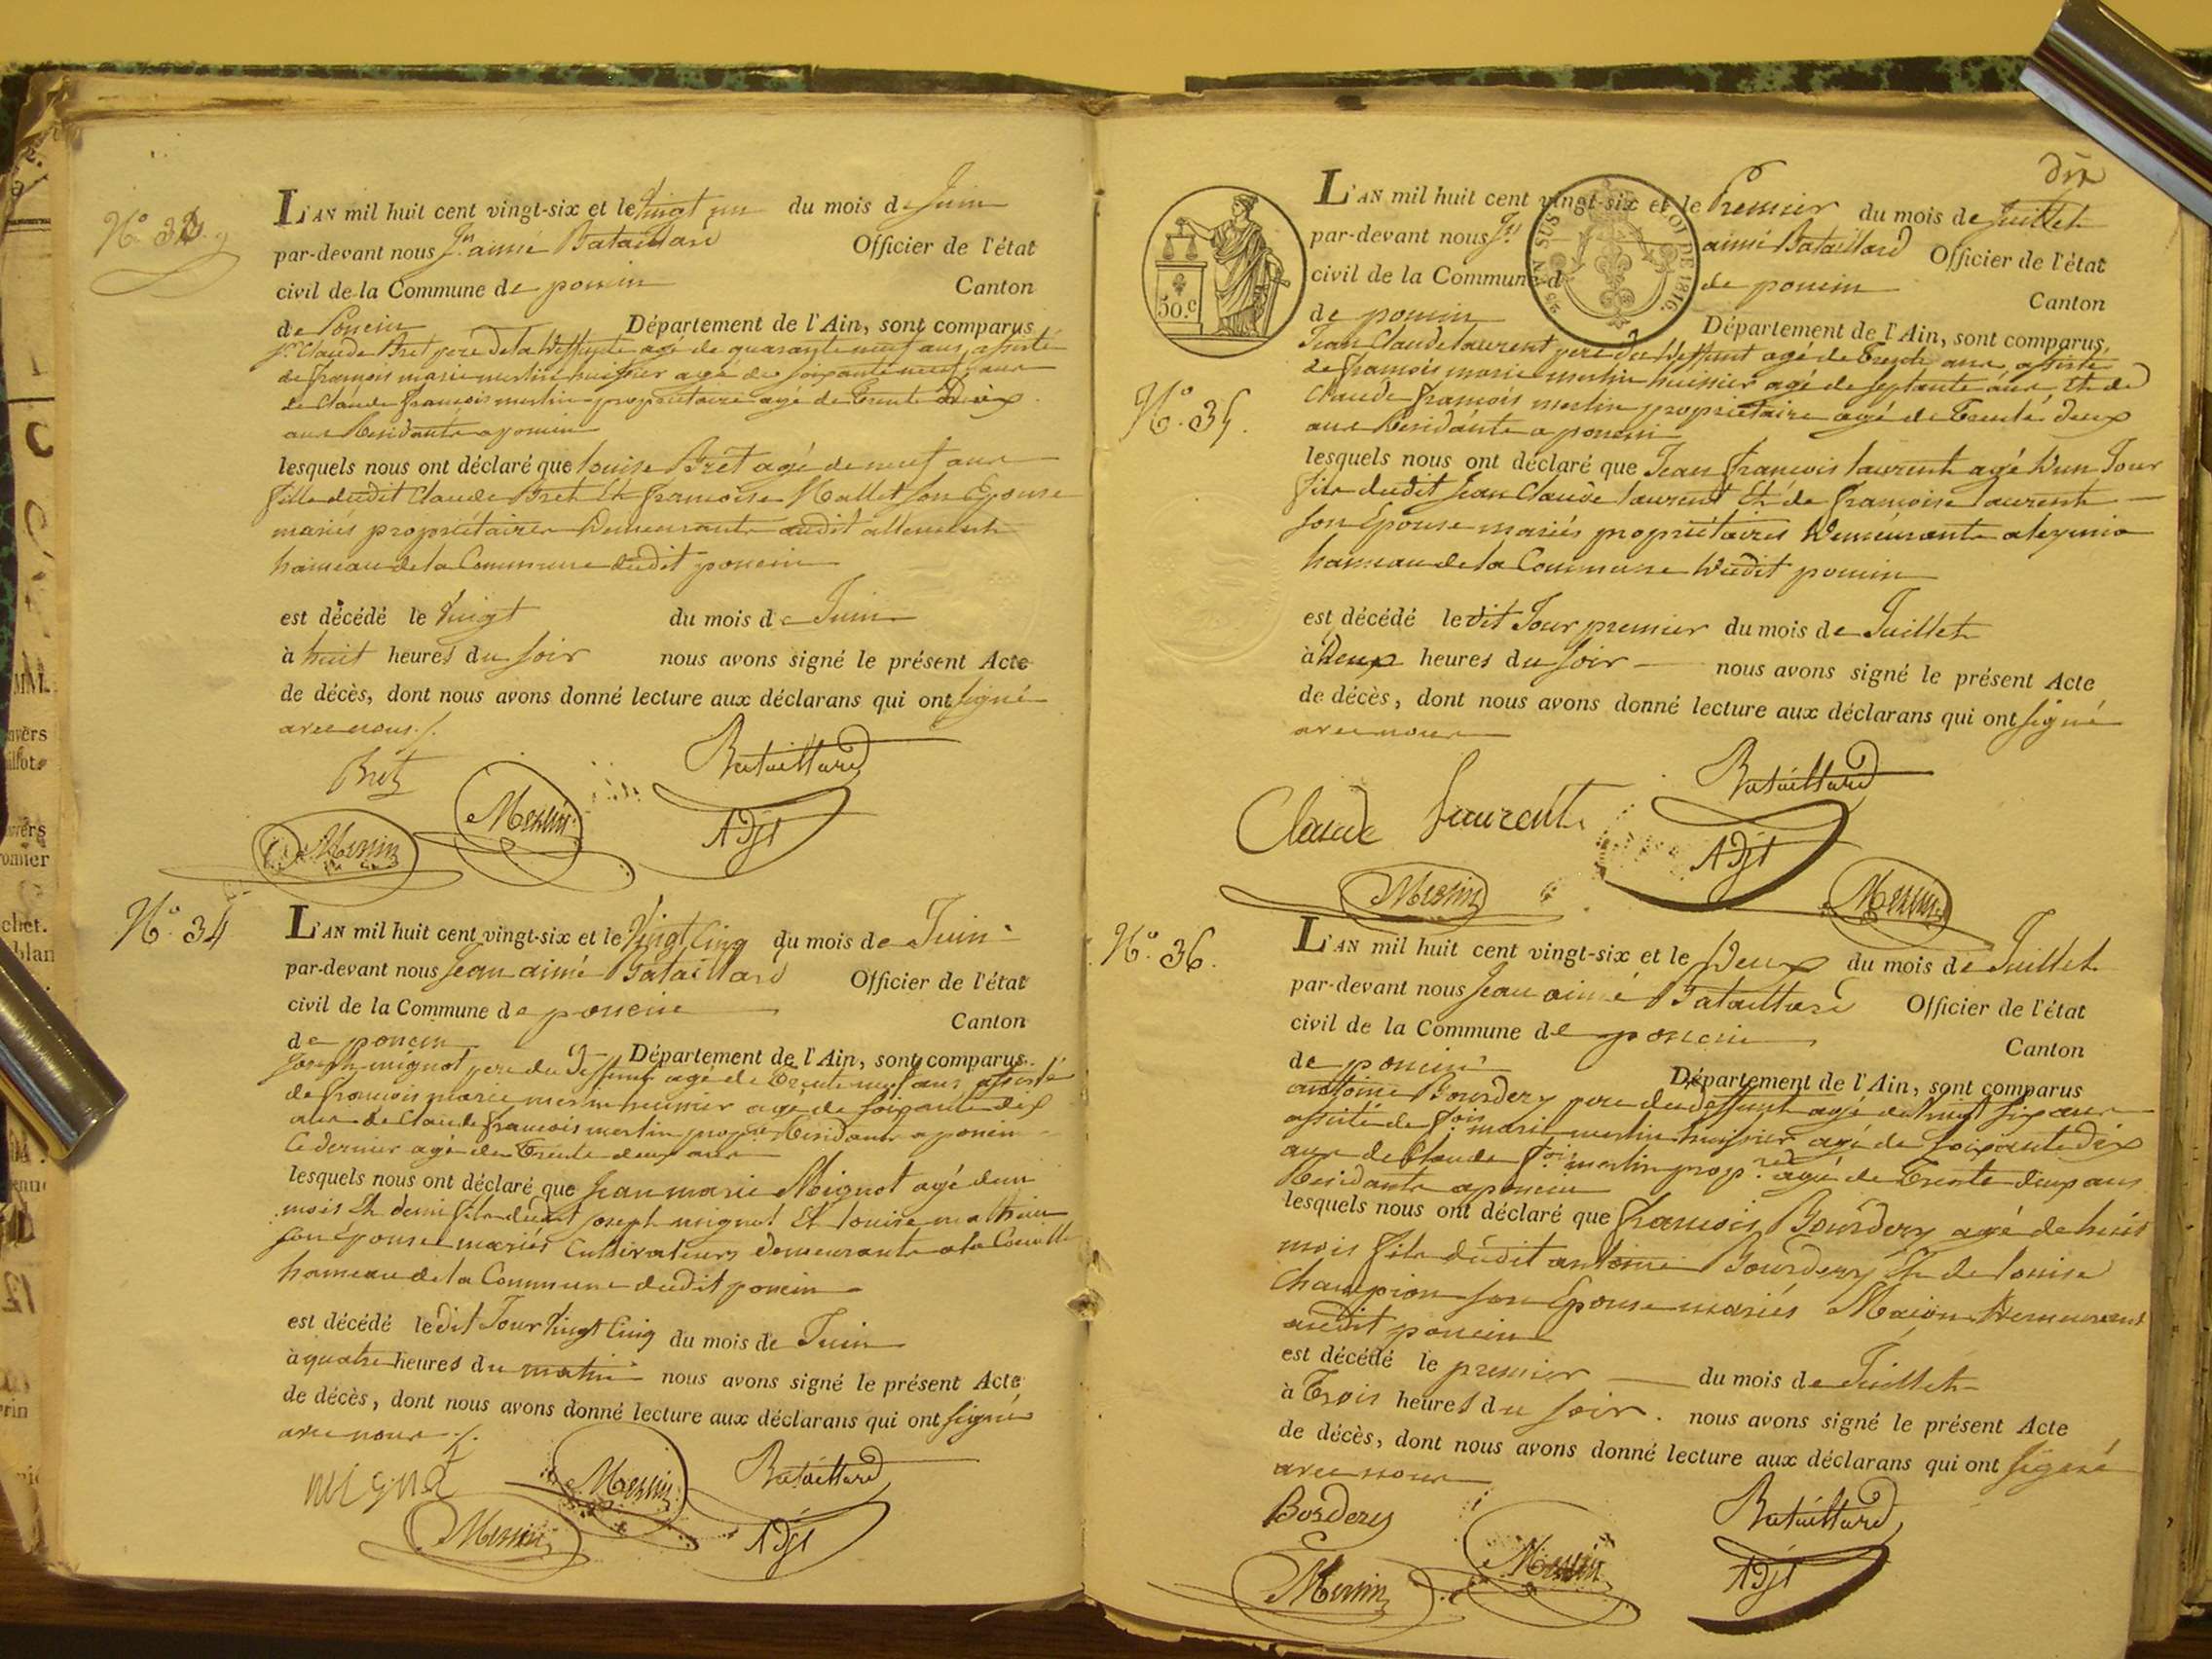 N.° 33
L'AN mil huit cent vingt-six et le vingt un du mois de Juin
par-devant nous Jn aimé Bataillard Officier de l'état
civil de la Commune de poncin Canton
de Poncin Département de l'Ain, sont comparus
Claude Bret pere de la deffunte agé de quarante neuf ans, assisté
de françois marie merlin huissier agé de soixante neuf ans
de Claude françois merlin propriétaire agé de trente deux
ans Residants a poncin
lesquels nous ont déclaré que louise Bret agé de neuf ans
fille dudit Claude Bret Et françoise Mallet son Epouse
mariés propriétaires Demeurants audit allement
hameau de la Commune dudit poncin
est décédé le vingt du mois de Juin
à huit heures du soir nous avons signé le présent Acte
de décès, dont nous avons donné lecture aux déclarans qui ont signé
avec nous ./.
Bret
Bataillard
Merlin
Merlin
Adjt
N.° 34
L'AN mil huit cent vingt-six et le Vingt Cinq du mois de Juin
par-devant nous Jean aimé Bataillard Officier de l'état
civil de la Commune de poncin Canton
de poncin Département de l'Ain, sont comparus
Joseph mignot pere du deffunt agé de trente neuf ans assisté
de françois marie merlin huissier agé de soixante dix
ans de Claude françois merlin propre Residants a poncin
Ce dernier agé de trente deux ans
lesquels nous ont déclaré que Jean marie Mignot agé d'un
mois Et demi fils dudit Joseph mignot Et louise mathieu
son Epouse mariés Cultivateurs demeurants a la
hameau de la Commune dudit poncin
est décédé ledit Jour Vingt Cinq du mois de Juin
à quatre heures du matin nous avons signé le présent Acte
de décès, dont nous avons donné lecture aux déclarans qui ont signé
avec nous ./.
mignot
Merlin
Bataillard
Merlin
Adjt
dix
50.c
LOI DE 1816
L'AN mil huit cent vingt-six et le Premier du mois de Juillet
par-devant nous Jn aimé Bataillard Officier de l'état
civil de la Commune de poncin Canton
de poncin Département de l'Ain, sont comparus,
N.° 35.
Jean Claude laurent pere du deffunt agé de trente ans, assisté
de françois marie merlin huissier agé de septante ans, Et de
Claude françois merlin propriétaire agé de trente deux
ans Residants a poncin
lesquels nous ont déclaré que Jean françois laurent agé d'un Jour
fils dudit Jean Claude laurent Et de françoise laurent
son Epouse mariés propriétaires Demeurants a
hameau de la Commune dudit poncin
est décédé ledit Jour premier du mois de Juillet
à deux heures du soir nous avons signé le présent Acte
de décès, dont nous avons donné lecture aux déclarans qui ont signé
avec nous
Claude Laurent
Bataillard
Adjt
Merlin
Merlin
N.° 36.
L'AN mil huit cent vingt-six et le Deux du mois de Juillet
par-devant nous Jean aimé Bataillard Officier de l'état
civil de la Commune de poncin Canton
de poncin Département de l'Ain, sont comparus
antoine Bourdery pere du deffunt agé de vingt six ans
assisté de fois marie merlin huissier agé de soixante dix
ans de Claude fois merlin propre agé de trente deux ans
Residants a poncin
lesquels nous ont déclaré que françois Bourdery agé de huit
mois fils dudit antoine Bourdery Et de louise
Champion son Epouse mariés Maçon demeurant
audit poncin
est décédé le premier du mois de Juillet
à Trois heures du soir. nous avons signé le présent Acte
de décès, dont nous avons donné lecture aux déclarans qui ont signé
avec nous
Bordery
Bataillard
Merlin
Merlin
Adjt